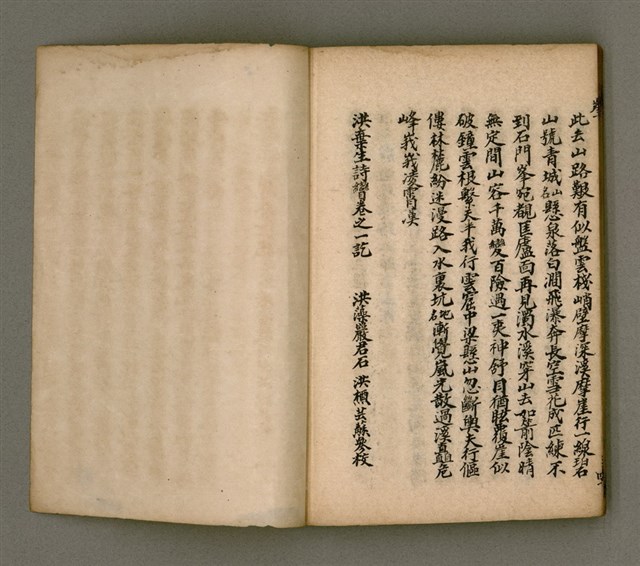 此去山路艱有似盤雲棧峭壁摩深溪摩崖行一線碧
山號青城山名懸泉落白澗飛瀑奔長空雪花成匹練不
到石門峯宛覩匡廬面再見濁水溪穿山去如箭陰晴
無定間山容千萬變百險過一爽神舒目猶眩巖崖似
破鐘雲根繫天半我行雲窟中梁懸山忽斷輿夫行傴
僂林麓紛迷漫路入水裏坑名地漸覺嵐光散過溪矗危
峰峩峩凌霄漢
洪棄生詩㘛卷之一訖 洪藻巖君石 洪槓芸蘇參校